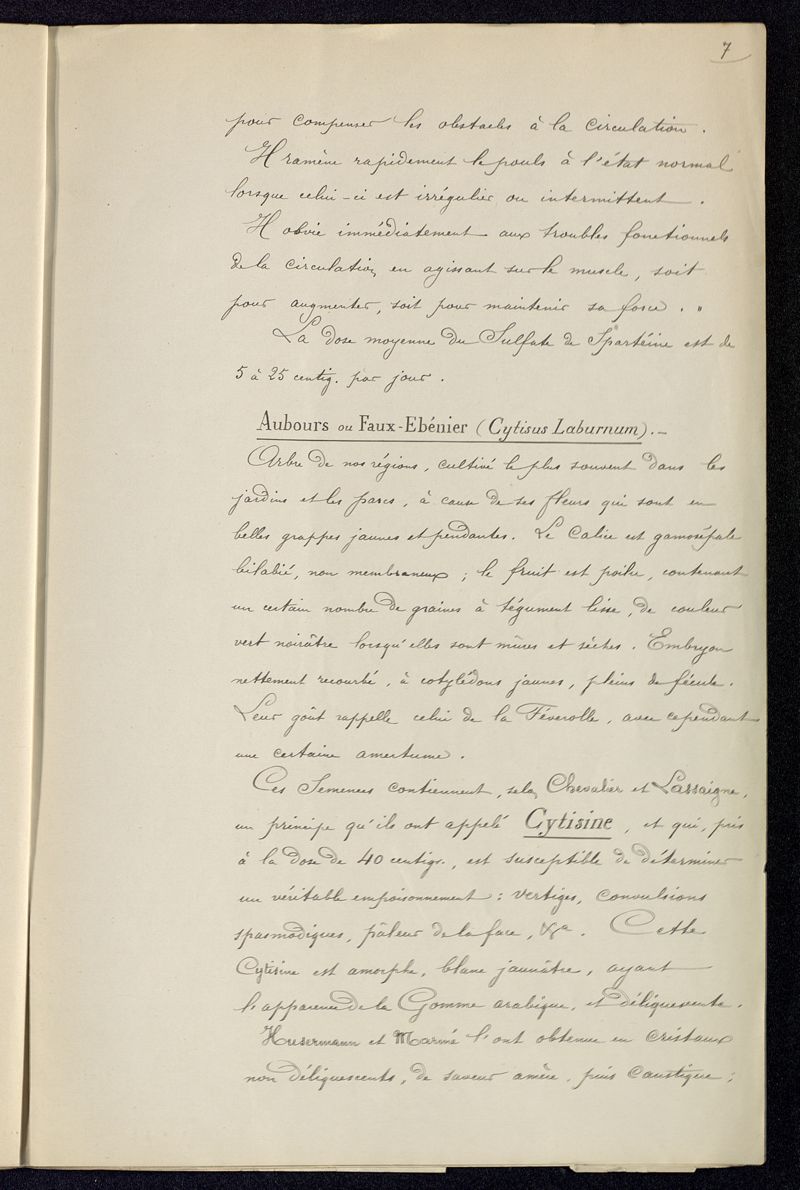 7
pour compenser les obstacles à la circulation.
Il ramène rapidement le pouls à l'état normal
lorsque celui-ci est irrégulier ou intermittent.
Il obvie immédiatement aux troubles fonctionnels
de la circulation en agissant sur le muscle, soit
pour augmenter, soit pour maintenir sa force. "
La dose moyenne du Sulfate de Spartéine est de
5 à 25 centig. par jour.
Aubours ou Faux-Ebénier (Cytisus Laburnum).-
Arbre de nos régions, cultivé le plus souvent dans les
jardins et les parcs, à cause de ses fleurs qui sont en
belles grappes jaunes et pendantes. Le Calice est gamosépale
bilabié, non membraneux ; le fruit est poilu, contenant
un certain nombre de graines à tégument lisse, de couleur
vert noirâtre lorsqu'elles sont mûres et sèches. Embryon
nettement recourbé, à cotylédons jaunes, pleins de fécule.
Leur goût rappelle celui de la Féverolle, avec cependant
une certaine amertume.
Ces Semences contiennent, selon Chevalier et Lassaigne,
un principe qu'ils ont appelé Cytisine, et qui, pris
à la dose de 40 centigr., est susceptible de déterminer
un véritable empoisonnement : vertiges, convulsions
spasmodiques, pâleur de la face, &a. Cette
Cytisine est amorphe, blanc jaunâtre, ayant
l'apparence de la Gomme arabique, et déliquescente.
Husermann et Marmé l'ont obtenue en cristaux
non déliquescents, de saveur amère, puis caustique ;